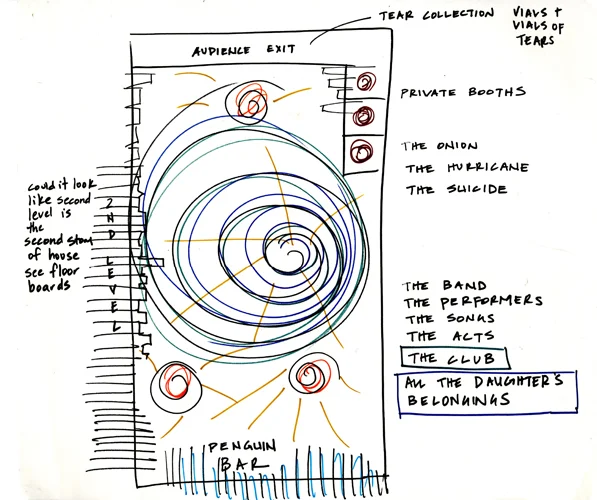 TEAR COLLECTION
VIALS +
VIALS OF
TEARS
AUDIENCE EXIT
PRIVATE BOOTHS
THE ONION
THE HURRICANE
THE SUICIDE
could it look
like second
level is
the
second story
of house
see floor
boards
2ND LEVEL
THE BAND
THE PERFORMERS
THE SONGS
THE ACTS
THE CLUB
ALL THE DAUGHTER'S
BELONGINGS
PENGUIN
BAR